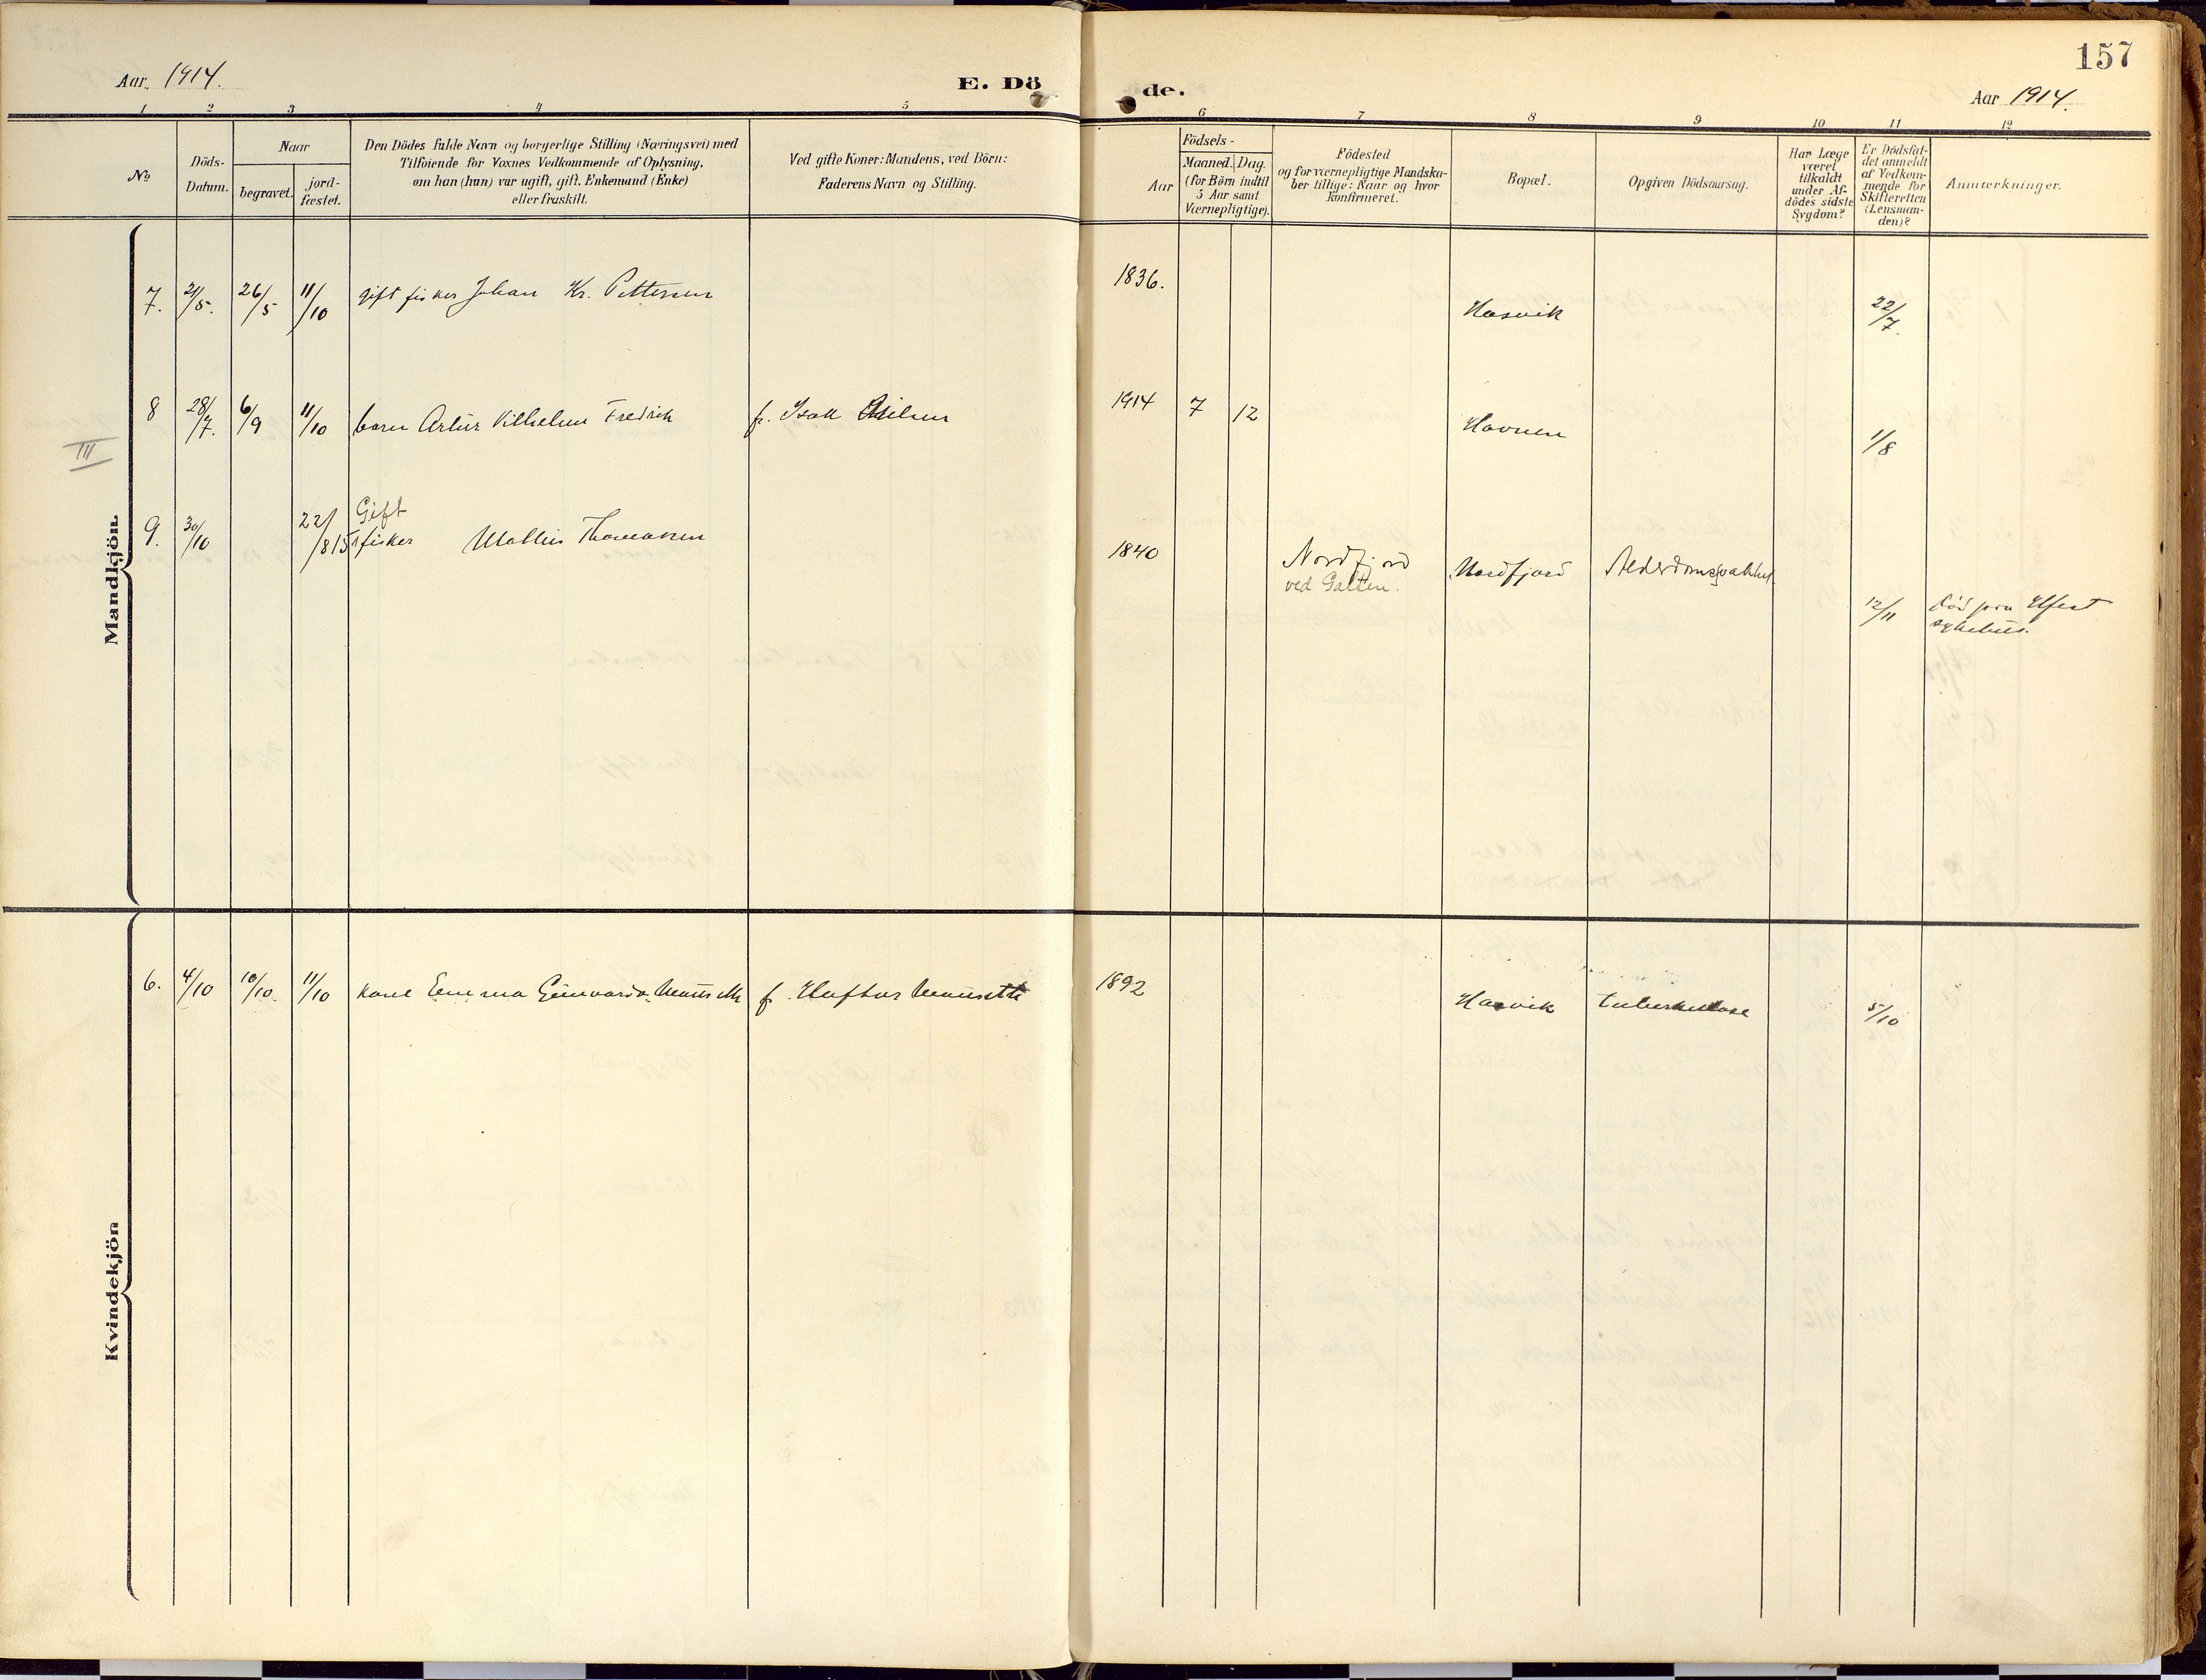 157
Aar 1914.
E. Dö
de.
Aar 1914.
1 2 3 4 5 6 7 8 9 10 11 12
No
Döds-
Datum.
Naar
begravet.
jord-
fæstet.
Den Dödes fulde Navn og borgerlige Stilling (Næringsvei) med
Tilföiende for Voxnes Vedkommende af Oplysning,
om han (hun) var ugift, gift, Enkemand (Enke)
eller fraskilt.
Ved gifte Koner: Mandens, ved Börn:
Faderens Navn og Stilling.
Födsels-
Aar
Maaned. Dag.
(for Börn indtil
5 Aar samt
Værnepligtige).
Födested
og for værnepligtige Mandska-
ber tillige: Naar og hvor
konfirmeret.
Bopæl.
Opgiven Dödsaarsag.
Har Læge
været
tilkaldt
under Af-
dödes sidste
Sygdom?
Er Dödsfal-
det anmeldt
af Vedkom-
mende for
Skifteretten
(Lensman-
den)?
Anmærkninger.
Mandkjön.
7. 21/5. 26/5 11/10 gift fisker Johan Kr. Pettersen 1836. Hasvik 22/7.
8 28/7. 6/9 11/10 barn Artur Vilhelm Fredrik f. Isak Nilsen 1914 7 12 Havnen 1/8
III
9. 30/10 22/8 15 Gift
fisker Mathis Thomassen 1840 Nordfjord Nordfjord Alderdomssvakhet
ved Galten.
12/11 død paa Hfest
sykehus.
Kvindekjön
6. 4/10 10/10. 11/10 kone Emma f. Hafbor 1892 Hasvik tuberkulose 5/10